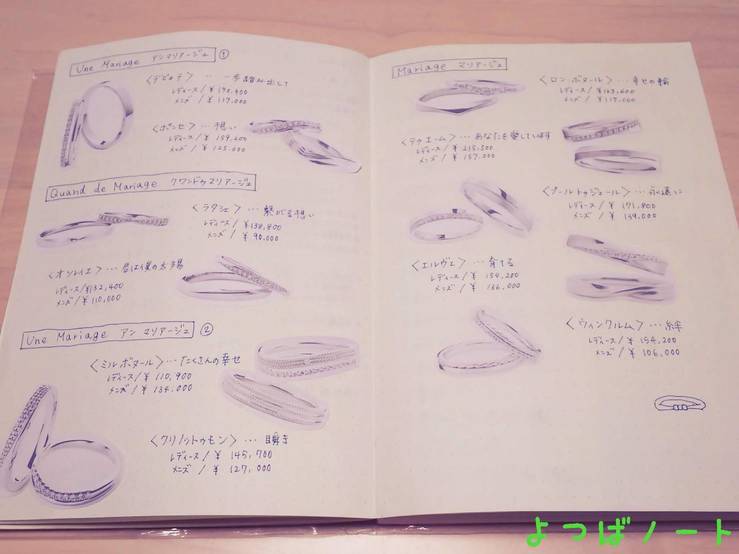 Une Mariage アンマリアージュ ①
… 一歩踏み出して
レディース/¥
メンズ/¥ 119.000
<ポンセ> … 想い
レディース/¥ 159,200
メンズ/¥ 125.000
Quand de Mariage クワンドゥマリアージュ
<ラタシェ> … 繋がる想い
レディース/¥138,800
メンズ/¥ 90.000
<オンソレイエ> … 君は僕の太陽
レディース/¥132,400
メンズ/¥ 110,000
Une Mariage アン マリアージュ ②
<ミルボヌール> … たくさんの幸せ
レディース/¥ 110,900
メンズ/¥ 134.000
… 瞬き
レディース/¥ 145,700
メンズ/¥ 127,000
Mariage マリアージュ
<ロン・ボヌール> … 幸せの輪
レディース/¥163,600
メンズ/¥ 119.000
… あなたを愛しています
レディース/¥ 215,500
メンズ/¥ 157.000
… 永遠に
レディース/¥ 171,800
メンズ/¥ 139,000
<エルヴェ> … 育てる
レディース/¥ 154,200
メンズ/¥ 136,000
<ウィンクルム> … 絆
レディース/¥ 154,200
メンズ/¥ 106,000
よつばノート